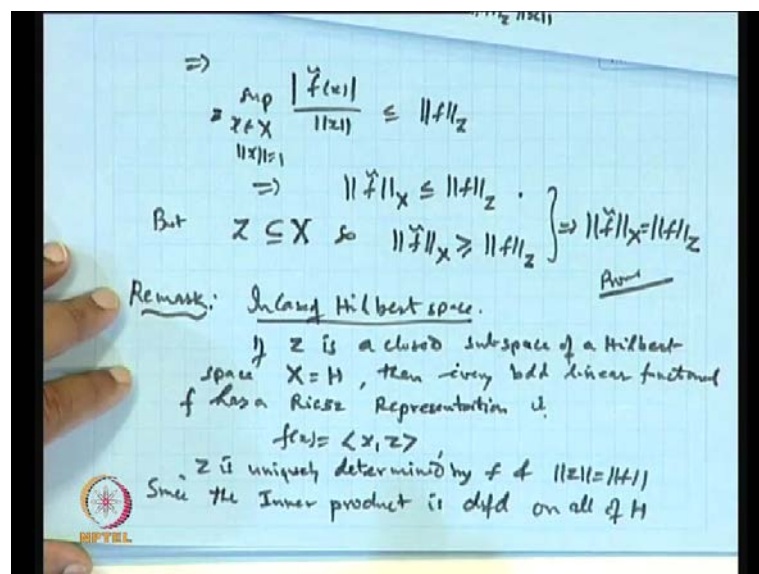 ⇒
= sup |f̃(x)| / ||x|| ≤ ||f||_Z
x∈X
||x||=1
⇒ ||f̃||_X ≤ ||f||_Z .
But Z ⊆ X so ||f̃||_X ≥ ||f||_Z } ⇒ ||f̃||_X = ||f||_Z
Proved
Remark: In case of Hilbert space.
If Z is a closed subspace of a Hilbert
space X = H, then every bdd linear functional
f has a Riesz Representation ie.
f(x) = <x, z>
z is uniquely determined by f & ||z|| = ||f||
Since the Inner product is defd on all of H
NPTEL